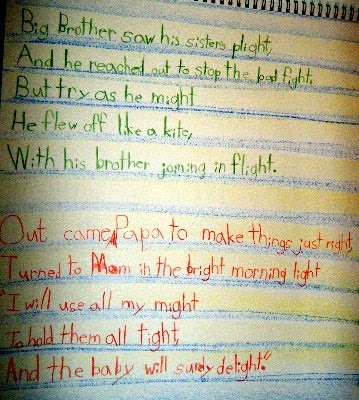 Big Brother saw his sisters plight,
And he reached out to stop the bad fight,
But try as he might
He flew off like a kite,
With his brother joining in flight.
Out came Papa to make things just right,
Turned to Mom in the bright morning light
"I will use all my might
To hold them all tight,
And the baby will surely delight."